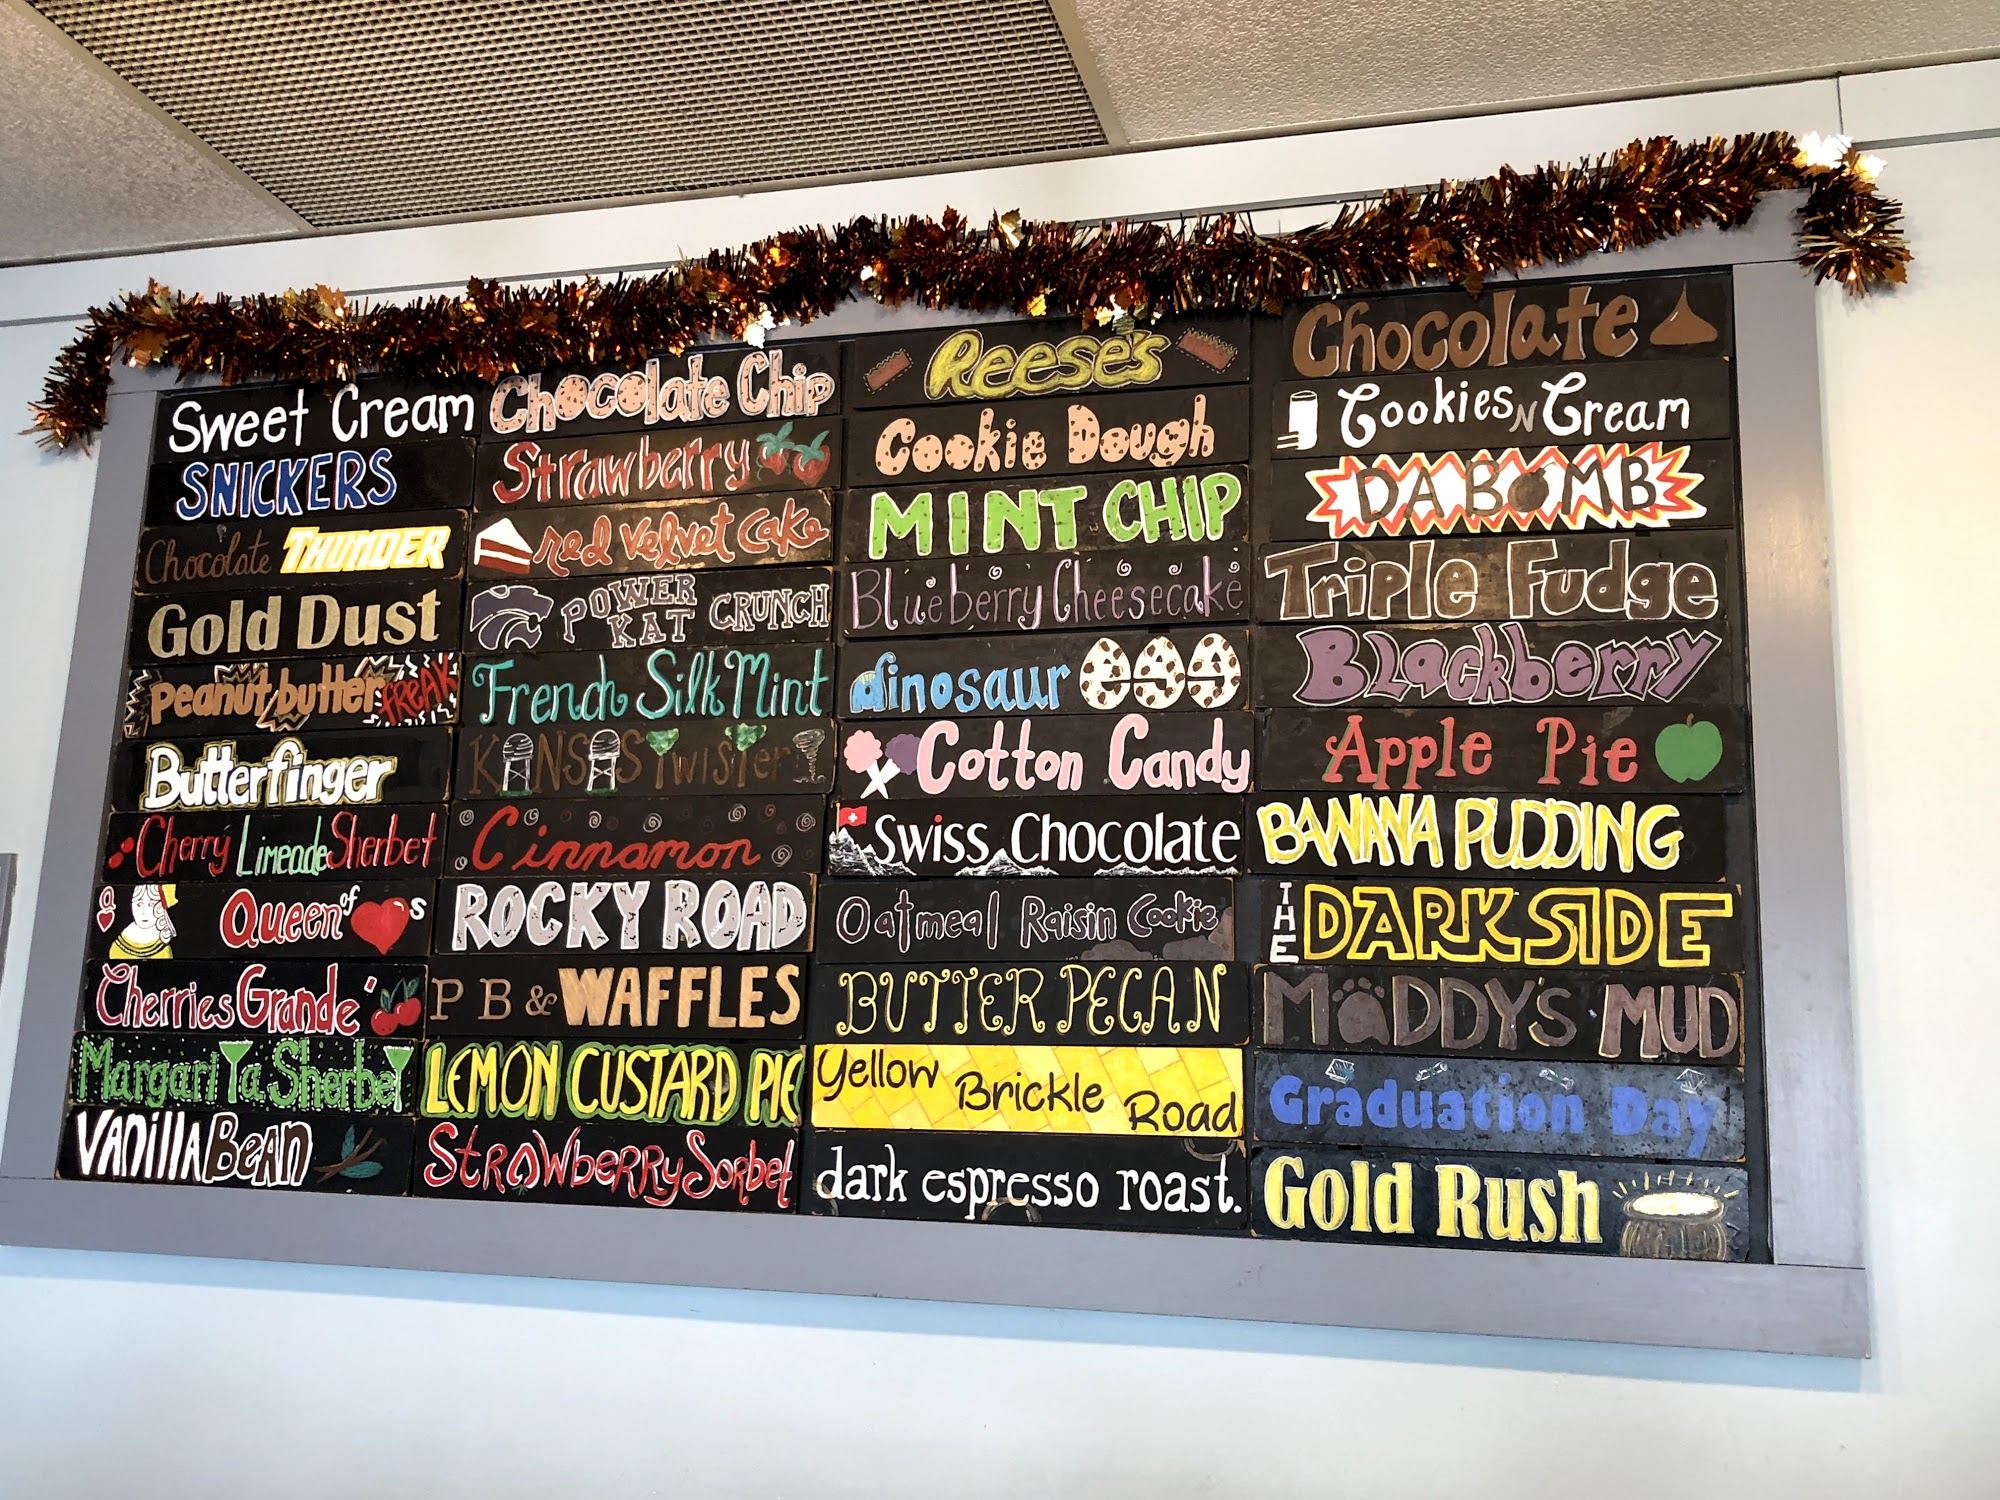 Sweet Cream
SNICKERS
Chocolate THUNDER
Gold Dust
Peanut butter FREAK
Butterfinger
Cherry Limeade Sherbet
Q Queen of ♥s
Cherries Grandé
Margarita Sherbet
VANILLA BEAN
Chocolate Chip
Strawberry
red velvet cake
POWER KAT CRUNCH
French Silk Mint
KANSAS Twister
Cinnamon
ROCKY ROAD
PB & WAFFLES
LEMON CUSTARD PIE
Strawberry Sorbet
Reese's
Cookie Dough
MINT CHIP
Blueberry Cheesecake
dinosaur egg
Cotton Candy
Swiss Chocolate
Oatmeal Raisin Cookie
BUTTER PECAN
Yellow Brickle Road
dark espresso roast.
Chocolate
Cookies N Cream
DA BOMB
Triple Fudge
Blackberry
Apple Pie
BANANA PUDDING
THE DARK SIDE
MADDY'S MUD
Graduation Day
Gold Rush